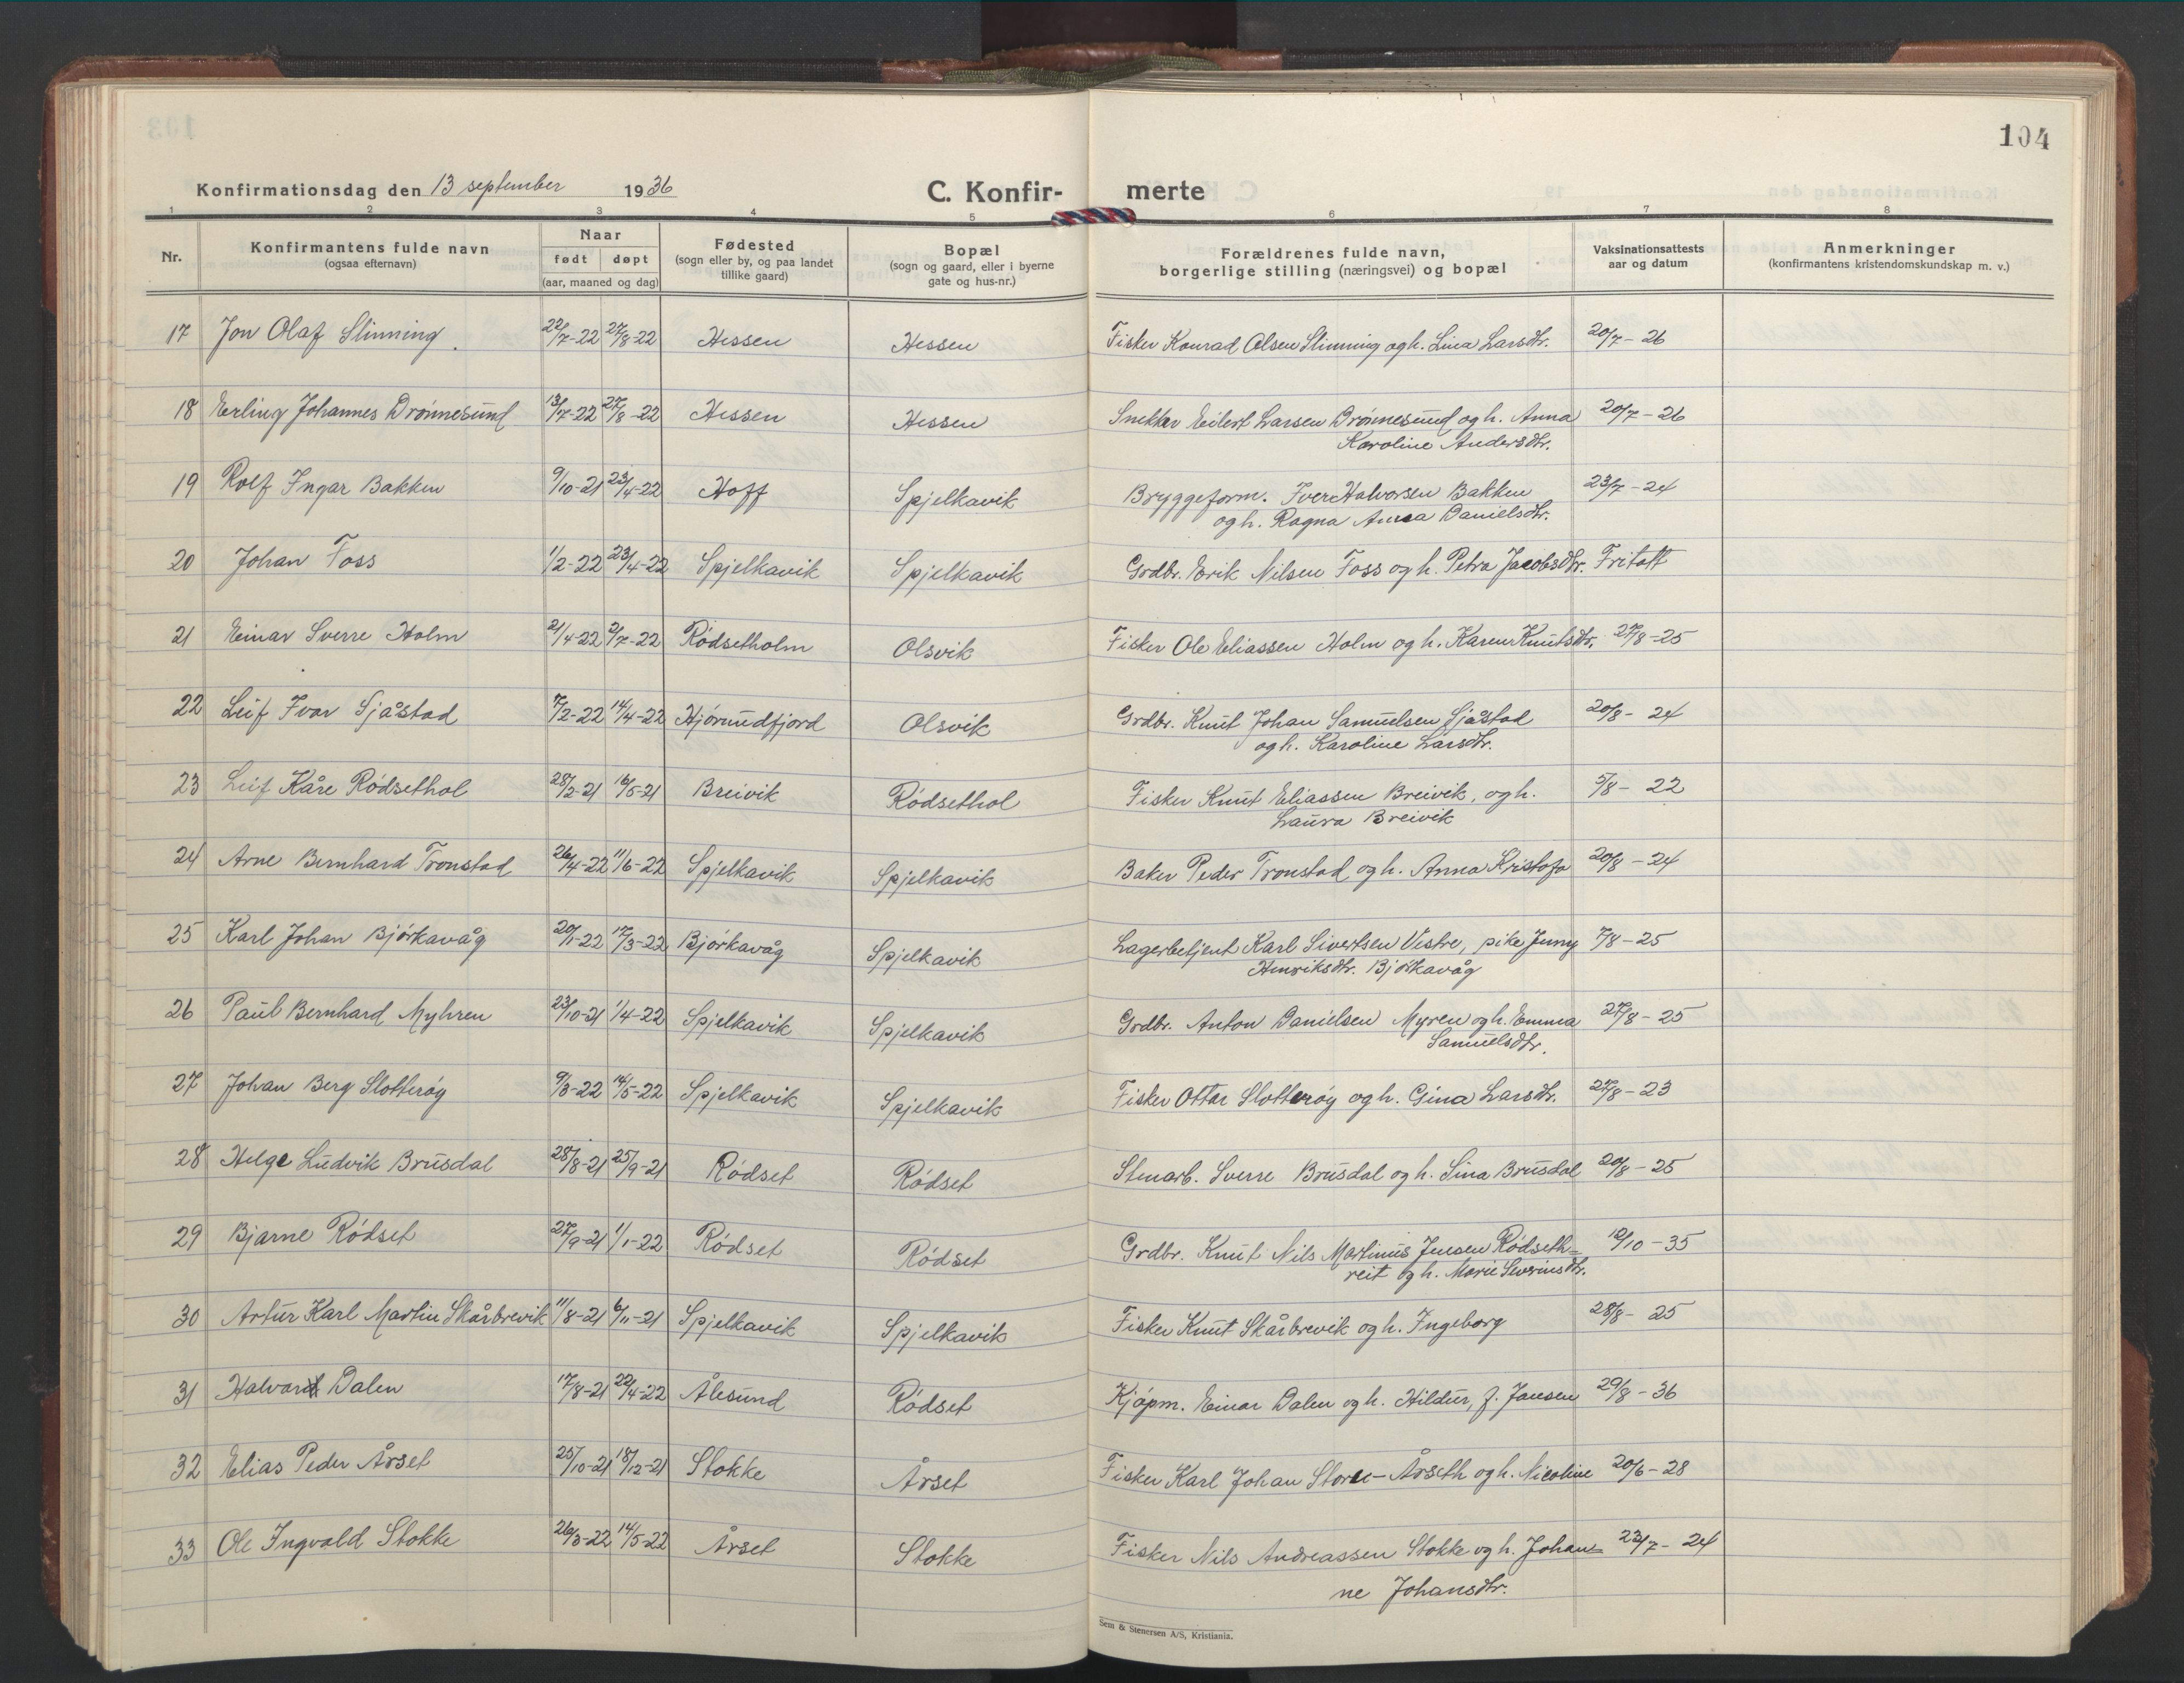 104
Konfirmationsdag den 13 september 1936
C. Konfir- merte
1 2 3 4 5 6 7 8
Nr.
Konfirmantens fulde navn
(ogsaa efternavn)
Naar
født døpt
(aar, maaned og dag)
Fødested
(sogn eller by, og paa landet
tillike gaard)
Bopæl
(sogn og gaard, eller i byerne
gate og hus-nr.)
Forældrenes fulde navn,
borgerlige stilling (næringsvei) og bopæl
Vaksinationsattests
aar og datum
Anmerkninger
(konfirmantens kristendomskundskap m. v.)
17 Jon Olaf Slinning 22/7-22 27/8-22 Hessen Hessen Fisker Konrad Olsen Slinning og h. Lina Larsdtr. 20/7-26
18 Erling Johannes Drønnesund 13/7-22 27/8-22 Hessen Hessen Snekker Eilert Larsen Drønnesund og h. Anna 20/7-26
Karoline Andersdtr.
19 Rolf Ingar Bakken 9/10-21 23/4-22 Hoff Spjelkavik Bryggeform. Iver Halvorsen Bakken 23/7-24
og h. Ragna Anna Danielsdtr.
20 Johan Foss 1/2-22 23/4-22 Spjelkavik Spjelkavik Grdbr. Erik Nilsen Foss og h. Petra Jacobsdtr. Fritatt
21 Einar Sverre Holm 21/4-22 2/7-22 Rødsetholm Olsvik Fisker Ole Eliassen Holm og h. Karen Knutsdtr. 27/8-25
22 Leif Ivar Sjåstad 7/2-22 14/4-22 Hjørundfjord Olsvik Grdbr. Knut Johan Samuelsen Sjåstad 20/8-24
og h. Karoline Larsdtr.
23 Leif Kåre Rødsethol 28/2-21 16/5-21 Breivik Rødsethol Fisker Knut Eliassen Breivik, og h. 5/8-22
Laura Breivik
24 Arne Bernhard Tronstad 26/4-22 11/6-22 Spjelkavik Spjelkavik Baker Peder Tronstad og h. Anna Kristofa 20/8-24
25 Karl Johan Bjørkavåg 20/1-22 17/3-22 Bjørkavåg Spjelkavik Lagerbetjent Karl Sivertsen Vestre, pike Jenny 7/8-25
Henriksdtr. Bjørkavåg
26 Paul Bernhard Myhren 23/10-21 1/4-22 Spjelkavik Spjelkavik Grdbr. Anton Danielsen Myren og h. Emma 27/8-25
Samuelsdtr.
27 Johan Berg Slotterøy 9/3-22 14/5-22 Spjelkavik Spjelkavik Fisker Ottar Slotterøy og h. Gina Larsdtr. 27/8-23
28 Helge Ludvik Brusdal 28/8-21 25/9-21 Rødset Rødset Stenarb. Sverre Brusdal og h. Sina Brusdal 20/8-25
29 Bjarne Rødset 27/9-21 1/1-22 Rødset Rødset Grdbr. Knut Nils Martinus Jensen Rødseth= 12/10-35
reit og h. Marie Severinsdtr.
30 Artur Karl Martin Skårbrevik 11/8-21 6/11-21 Spjelkavik Spjelkavik Fisker Knut Skårbrevik og h. Ingeborg 28/8-25
31 Halvard Dalen 17/8-21 22/4-22 Ålesund Rødset Kjøpm. Einar Dalen og h. Hildur, f. Jansen 29/8-36
32 Elias Peder Årset 25/10-21 18/12-21 Stokke Årset Fisker Karl Johan Store-Årseth og h. Nicoline 20/6-28
33 Ole Ingvald Stokke 26/3-22 14/5-22 Årset Stokke Fisker Nils Andreassen Stokke og h. Johan= 23/7-24
ne Johansdtr.
Sem & Stenersen A/S, Kristiania.